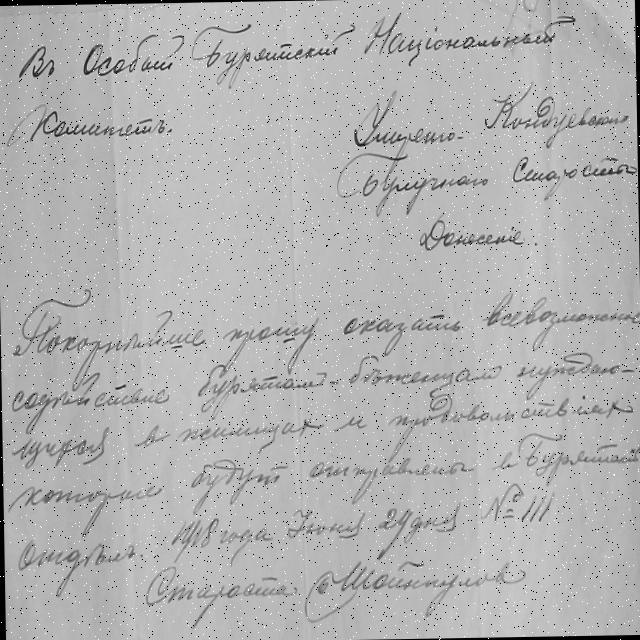 Въ Особый Бурятскій Національный
Комитетъ.
Кондуевскаго
Старосты
Донесеніе.
Покорнѣйше прошу оказать всевозможное
содѣйствіе бурятамъ-бѣженцамъ нуждаю-
щихся в жилищах и продовольствіях
которые будут отправлены в Бурятскій
Отдѣлъ. 1918 года Іюня 29 дня № 111
Староста